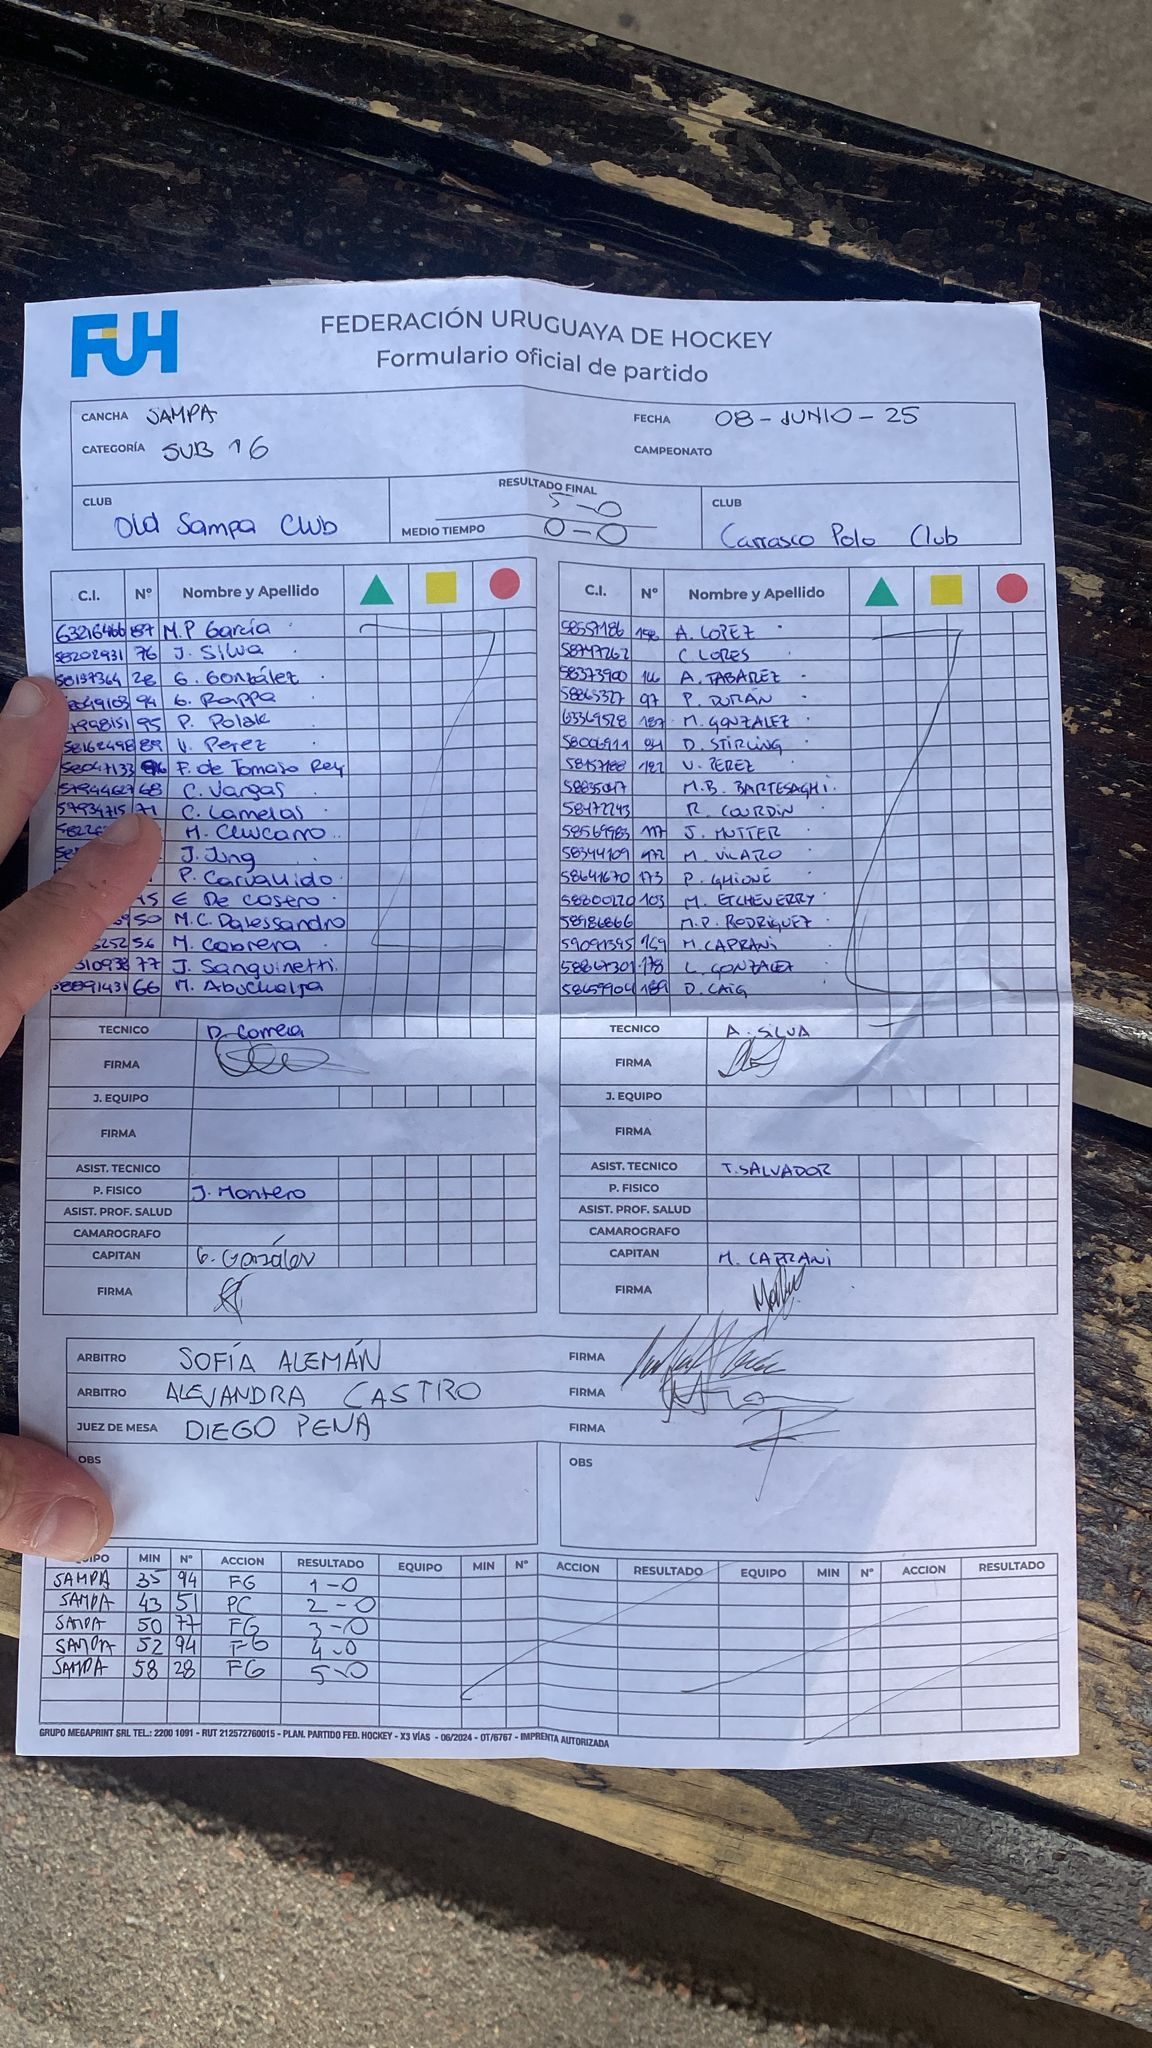 FUH
FEDERACIÓN URUGUAYA DE HOCKEY
Formulario oficial de partido
CANCHA SAMPA FECHA 08-JUNIO-25
CATEGORÍA SUB 16 CAMPEONATO
CLUB Old Sampa Club RESULTADO FINAL 5-0 CLUB Carrasco Polo Club
MEDIO TIEMPO 0-0
C.I. Nº Nombre y Apellido C.I. Nº Nombre y Apellido
63216466 M.P García 58557186 A. LOPEZ
58202931 76 J. Silva 58747262 C LORES
58137364 28 G. González 58373900 A. TABAREZ
94 G. Rappa 58865327 97 P. DURÁN
95 P. Polak 63369528 187 M. GONZALEZ
58162498 89 V. Perez D. STIRLING
58047133 F. de Tomaso Rey 58457188 182 V. PEREZ
57944627 68 C. Vargas M.B. BARTESAGHI
57934715 71 C. Lamelas 58472243 R. COURDIN
M. Chucarro 58569983 J. MUTTER
J. Jung 58344109 M. VILARO
P. Carvalhido 58641670 173 P. GHIONE
E De Casero 58800220 103 M. ETCHEVERRY
50 M.C. Dalessandro 58986866 M.P. RODRIGUEZ
56 M. Cabrera 59091395 149 M. CAPRANI
77 J. Sanguinetti 58867301 178 L. GONZALEZ
58891431 66 M. Abuchalja 58659904 189 D. CAIG
TECNICO D. Correa TECNICO A. SILVA
FIRMA FIRMA
J. EQUIPO J. EQUIPO
FIRMA FIRMA
ASIST. TECNICO ASIST. TECNICO T. SALVADOR
P. FISICO J. Montero P. FISICO
ASIST. PROF. SALUD ASIST. PROF. SALUD
CAMAROGRAFO CAMAROGRAFO
CAPITAN G. González CAPITAN M. CAPRANI
FIRMA FIRMA
ARBITRO SOFÍA ALEMÁN FIRMA
ARBITRO ALEJANDRA CASTRO FIRMA
JUEZ DE MESA DIEGO PENA FIRMA
OBS OBS
MIN Nº ACCION RESULTADO EQUIPO MIN Nº ACCION RESULTADO EQUIPO MIN Nº ACCION RESULTADO
SAMPA 35 94 FG 1-0
SAMPA 43 51 PC 2-0
SAMPA 50 77 FG 3-0
SAMPA 52 94 FG 4-0
SAMPA 58 28 FG 5-0
GRUPO MEGAPRINT SRL TEL.: 2200 1091 - RUT 212572760015 - PLAN. PARTIDO FED. HOCKEY - X3 VÍAS - 06/2024 - OT/6767 - IMPRENTA AUTORIZADA